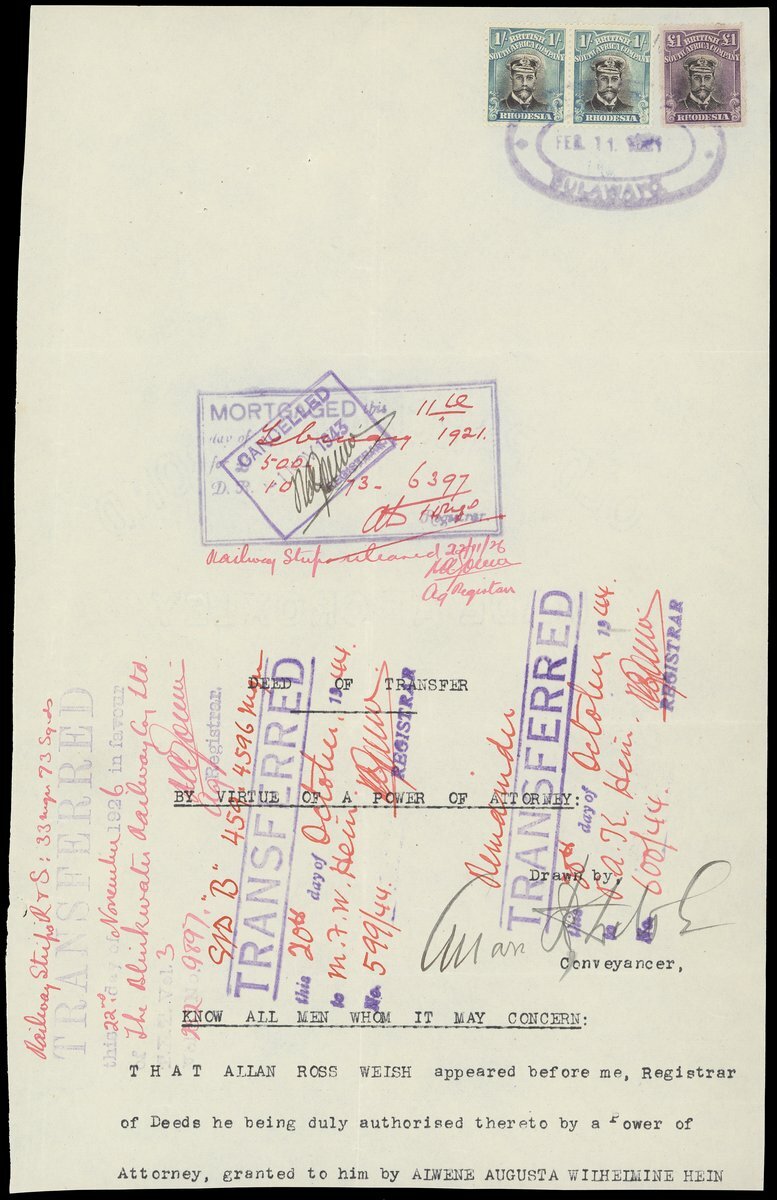 1/- BRITISH 1/-
SOUTH AFRICA COMPANY
RHODESIA
1/- BRITISH 1/-
SOUTH AFRICA COMPANY
RHODESIA
£1 BRITISH £1
SOUTH AFRICA COMPANY
RHODESIA
FEB. 11. 1921
BULAWAYO
MORTGAGED this 11th
day of February 1921.
for 500
D. R. 6397
Registrar
CANCELLED
1943
REGISTRAR
Railway Strips released 22/11/26
Ag Registrar
DEED OF TRANSFER
BY VIRTUE OF A POWER OF ATTORNEY:
Drawn by,
Conveyancer,
Railway Strips R & S: 33 mgn 73 Sq.
TRANSFERRED
this 22nd day of November 1926 in favour
of The Blinkwater Railway Coy Ltd.
Vol. 3
No. 9897.
Registrar.
"B" 4596 mgn
TRANSFERRED
this 20th day of October, 1944.
to M. F. W. Hein.
No. 599/44.
REGISTRAR
Remainder
TRANSFERRED
this 20th day of October 1944.
to A. K. Hein.
No. 600/44.
REGISTRAR
KNOW ALL MEN WHOM IT MAY CONCERN:
T H A T ALLAN ROSS WEISH appeared before me, Registrar
of Deeds he being duly authorised thereto by a Power of
Attorney, granted to him by ALWENE AUGUSTA WILHELMINE HEIN